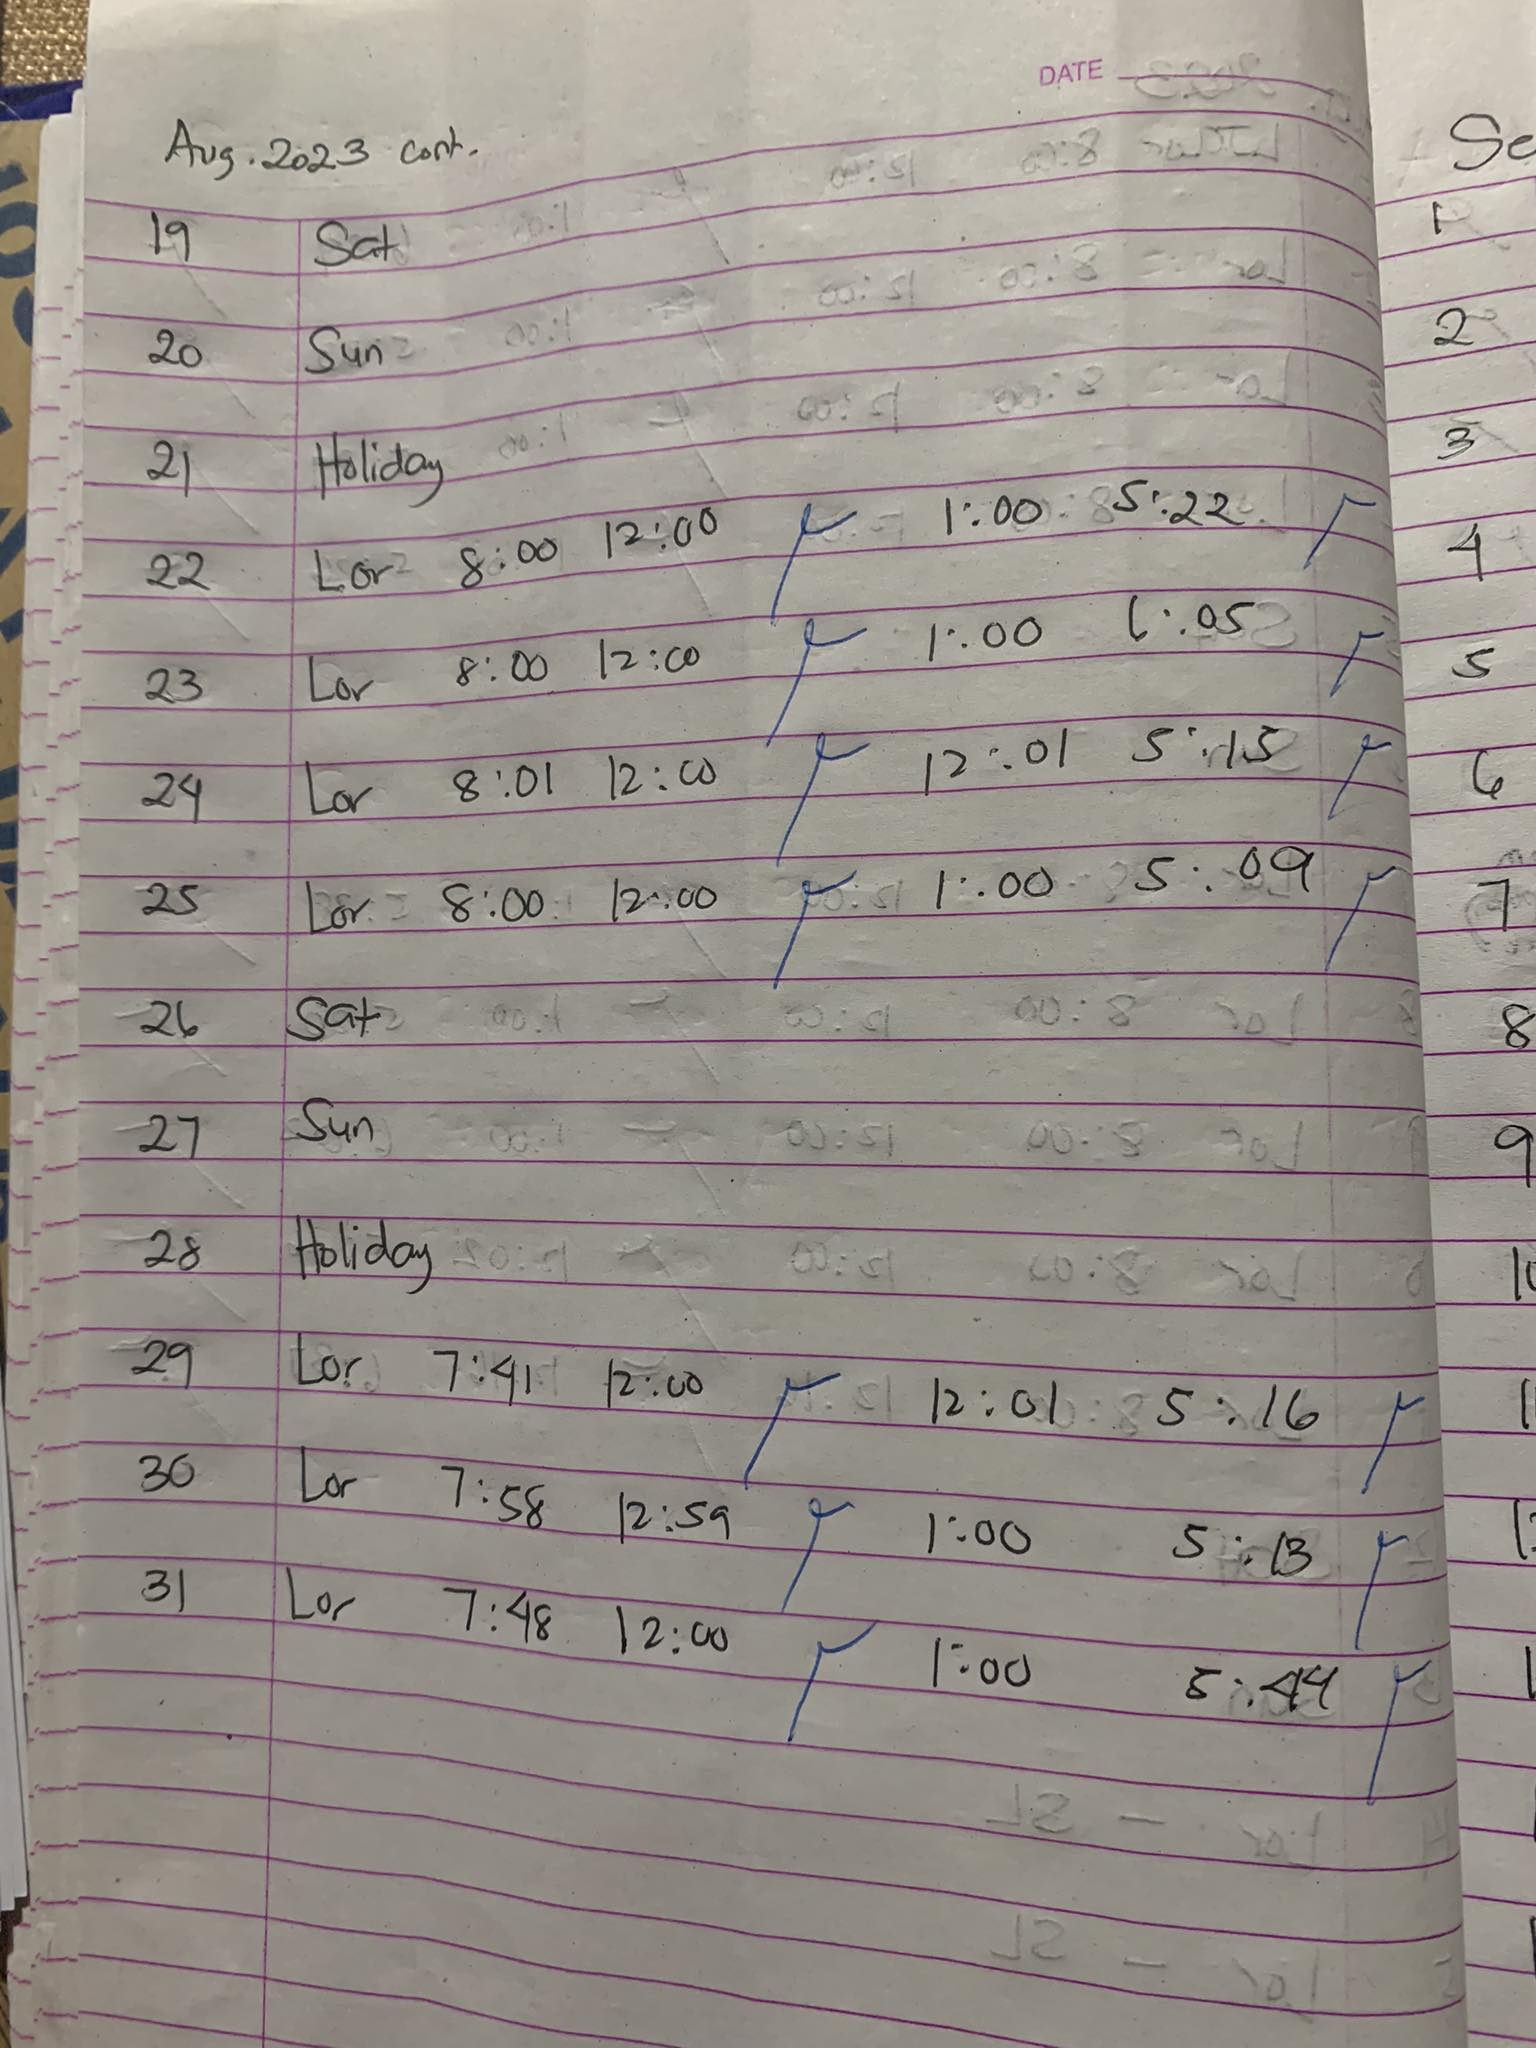 DATE
Aug. 2023 cont.
19 Sat
20 Sun
21 Holiday
22 Lor 8:00 12:00 1:00 5:22
23 Lor 8:00 12:00 1:00 6:05
24 Lor 8:01 12:00 12:01 5:15
25 Lor 8:00 12:00 1:00 5:09
26 Sat
27 Sun
28 Holiday
29 Lor 7:41 12:00 12:01 5:16
30 Lor 7:58 12:59 1:00 5:13
31 Lor 7:48 12:00 1:00 5:44
Se
1
2
3
4
5
6
7
8
9